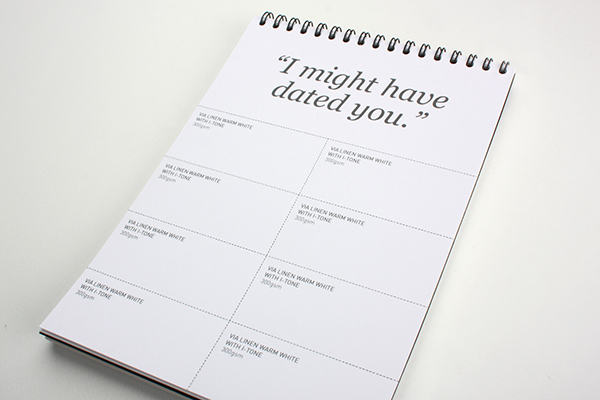 “I might have
dated you.”
VIA LINEN WARM WHITE
WITH I-TONE
300gsm
VIA LINEN WARM WHITE
WITH I-TONE
300gsm
VIA LINEN WARM WHITE
WITH I-TONE
300gsm
VIA LINEN WARM WHITE
WITH I-TONE
300gsm
VIA LINEN WARM WHITE
WITH I-TONE
300gsm
VIA LINEN WARM WHITE
WITH I-TONE
300gsm
VIA LINEN WARM WHITE
WITH I-TONE
300gsm
VIA LINEN WARM WHITE
WITH I-TONE
300gsm